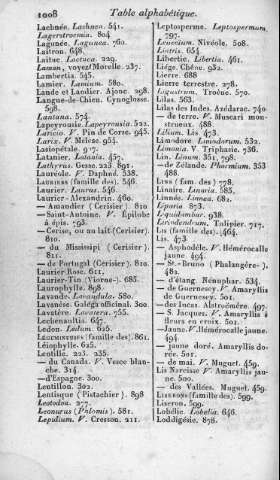 1008 Table alphabétique.
Lachnée. Lachnea. 541.
Lagerstroemia. 804
Lagunée. Lagunea. 760.
Laitron. 648.
Laitue. Lactuca. 229.
Laman, voyez Morelle. 237.
Lambertia. 545.
Lamier. Lamium. 580.
Lande et Landier. Ajonc. 298.
Langue-de-Chien. Cynoglosse.
598.
Lantana. 574.
Lapeyrousie. Lapeyrousia. 522.
Laricio. V. Pin de Corse. 945.
Larix. V. Méleze. 954.
Lasiopétale. 917.
Latanier. Latania. 457.
Lathyrus. Gesse. 223. 891.
Lauréole. V. Daphné. 538.
Laurinées (famille des). 546.
Laurier. Laurus. 546.
Laurier-Alexandrin. 460.
— Amandier (Cerisier). 810
— Saint-Antoine. V. Épilobe
à épis. 793.
— Cerise, ou au lait (Cerisier).
810.
— du Mississipi (Cerisier).
811.
— de Portugal (Cerisier). 810.
Laurier-Rose. 611.
Laurier-Tin (Viorne). 685.
Laurophylle. 898.
Lavande. Lavandula. 580.
Lavanèse. Galéga officinal. 300.
Lavatère. Lavatera. 755.
Lechenaultia. 657.
Ledon. Ledum. 626.
Légumineuses (famille des). 861.
Léiophylle. 625.
Lentille. 223. 235.
— du Canada. V. Vesce blanche.
314.
— d'Espagne. 300.
Lentillon. 302.
Lentisque (Pistachier). 898
Léonurus (Phlomis). 581.
Lepidium. V. Cresson. 211.
Leptosperme. Leptospermum.
797.
Leucoium. Nivéole. 508.
Liatris. 654.
Libertie. Libertia. 461.
Liége. Chêne. 932.
Lierre. 688
Lierre terrestre. 278.
Ligustrum. Troëne. 570.
Lilas. 563.
Lilas des Indes. Azédarac. 740
— de terre. V. Muscari monstrueux.
486
Lilium. Lis. 473.
Limodore. Limodorum. 532.
Limonia. V. Triphasie. 736.
Lin. Linum. 351, 298.
— de Zélande. Phormium. 353
488.
Lins (fam. des) 778.
Linaire. Linaria. 585.
Linnée. Linnæa. 682.
Liparia 873.
Liquidambar. 938.
Liriodendrum. Tulipier. 717.
Lis (famille des). 464.
Lis. 473.
— Asphodèle. V. Hémérocalle
jaune. 494.
— St.-Bruno (Phalangère).
482.
— d'étang. Nénuphar. 534.
— de Guernesey. V. Amaryllis
de Guernesey. 501.
— des Incas. Alstroémère. 497.
— S. Jacques. V. Amaryllis à
fleurs en croix. 501.
— Jaune. V. Hémérocalle jaune.
494.
— jaune doré. Amaryllis dorée.
501.
— de mai. V. Muguet. 459.
Lis Narcisse V. Amaryllis jaune.
500.
— des Vallées. Muguet. 459.
Liserons (famille des). 599.
Liseron. 599.
Lobélie. Lobelia. 646.
Loddigésie. 878.